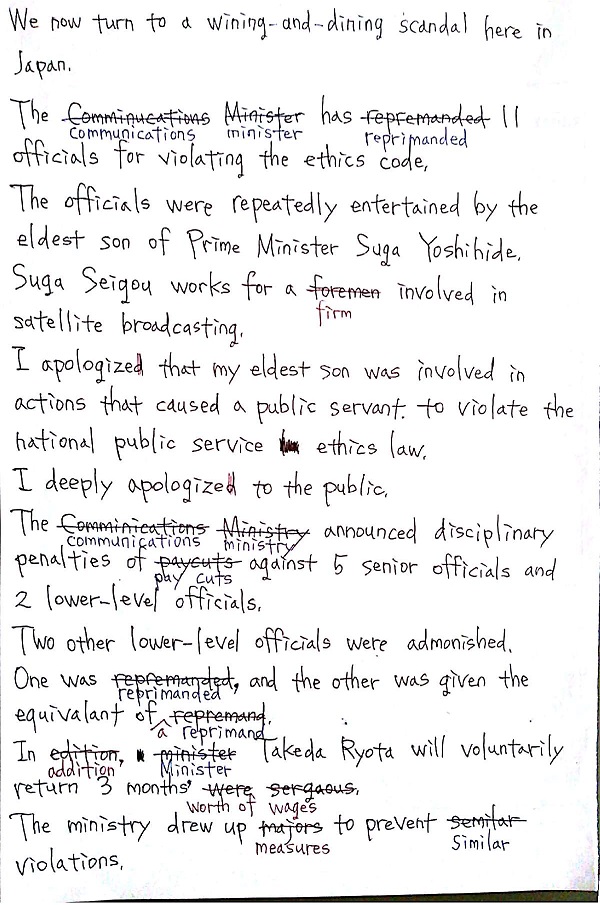 We now turn to a wining-and-dining scandal here in
Japan.
The Comminucations Minister has repremanded 11
communications minister reprimanded
officials for violating the ethics code.
The officials were repeatedly entertained by the
eldest son of Prime Minister Suga Yoshihide.
Suga Seigou works for a foremen involved in
firm
satellite broadcasting.
I apologized that my eldest son was involved in
actions that caused a public servant. to violate the
national public service ethics law.
I deeply apologized to the public.
The Comminications Ministry announced disciplinary
communications ministry
penalties of paycuts against 5 senior officials and
pay cuts
2 lower-level officials.
Two other lower-level officials were admonished.
One was repremanded, and the other was given the
reprimanded
equivalant of repremand.
a reprimand
In edition, minister Takeda Ryota will voluntarily
addition Minister
return 3 months' were sergaous.
worth of wages
The ministry drew up majors to prevent semilar
measures Similar
violations.